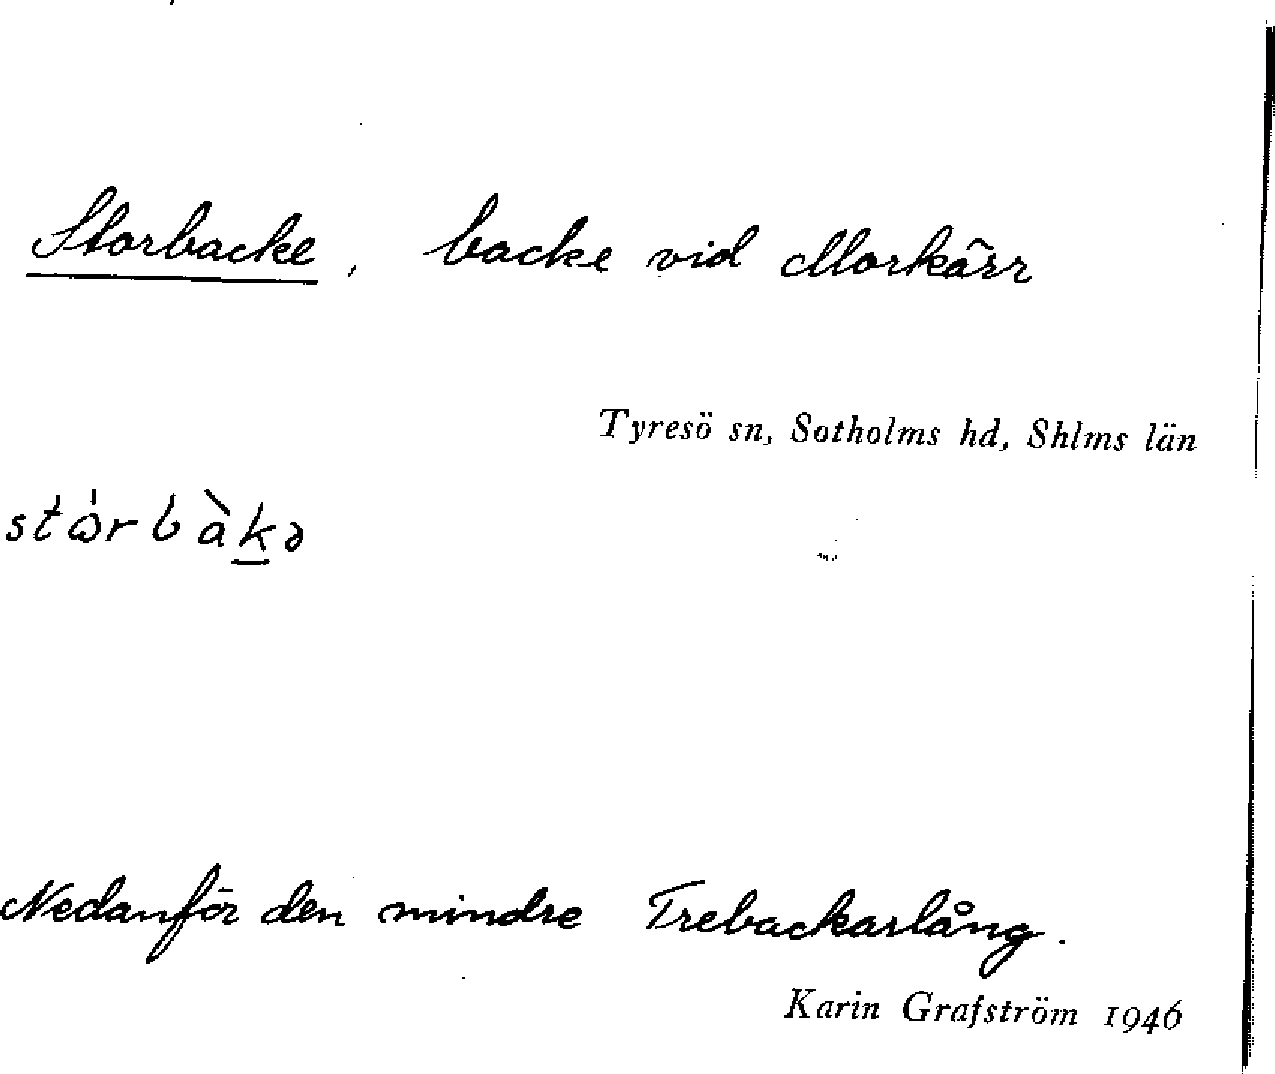 Storbacke, backe vid Morkärr
Tyresö sn, Sotholms hd, Shlms län
stω̇rbàk̲ə
Nedanför den mindre Trebackarlång.
Karin Grafström 1946